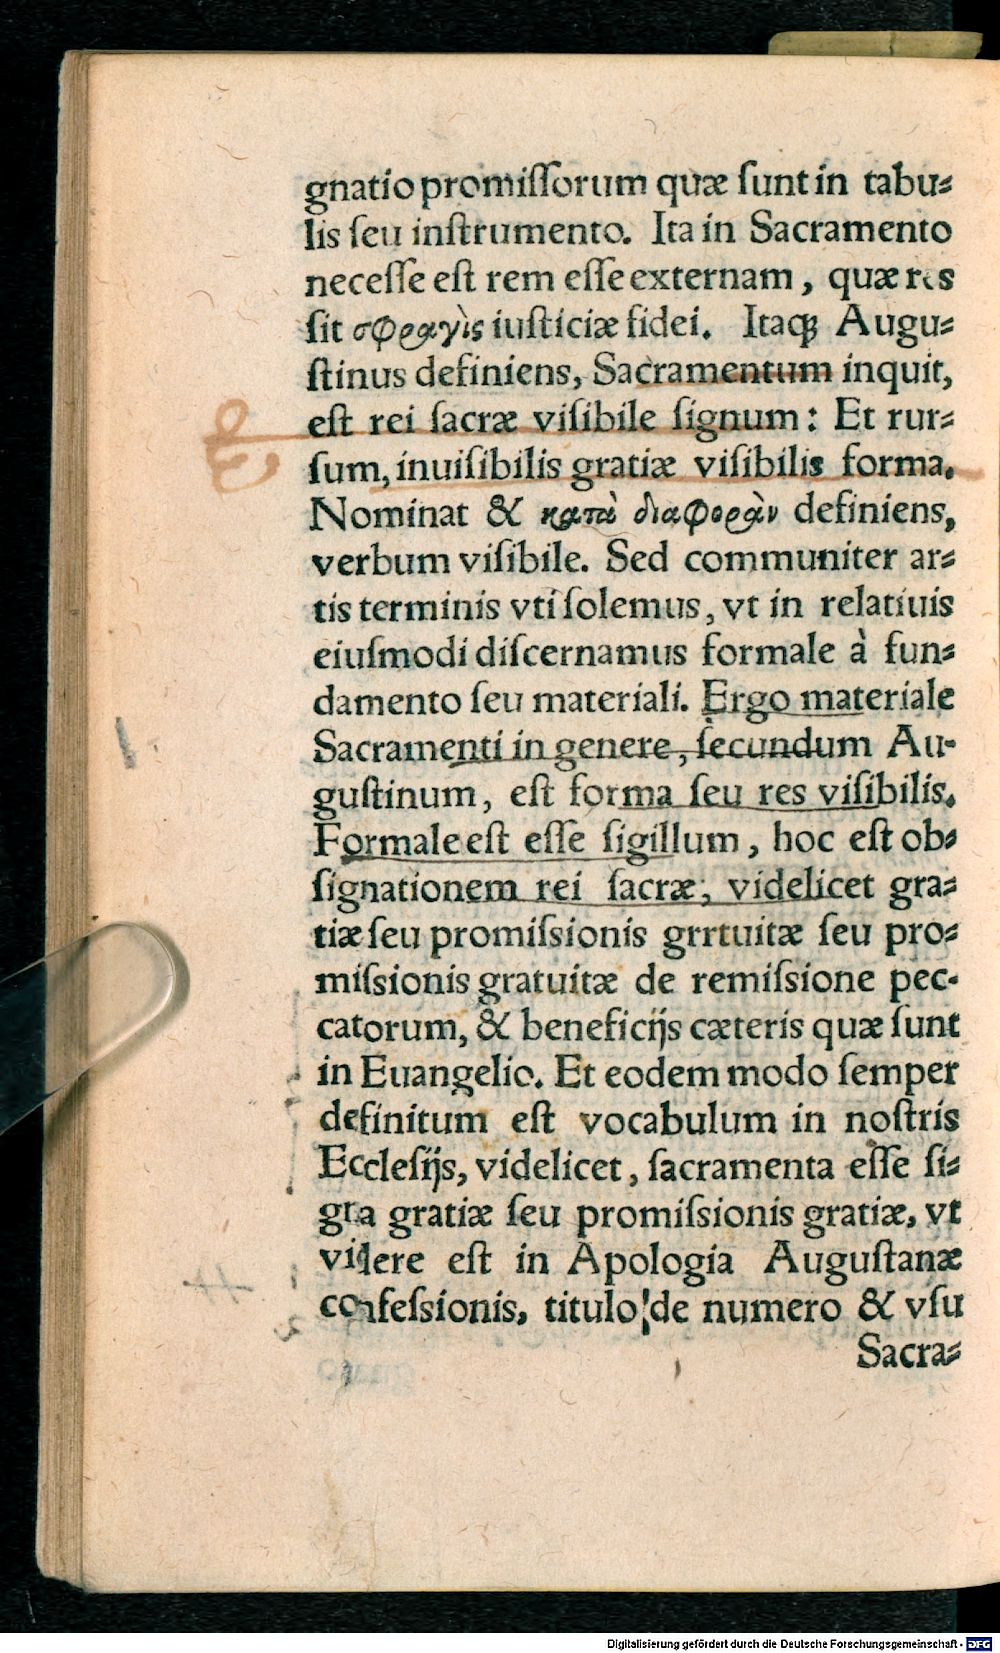 gnatio promiſſorum quæ ſunt in tabu⸗
lis ſeu inſtrumento. Ita in Sacramento
neceſſe eſt rem eſſe externam, quæ res
ſit σφραγὶς iuſticiæ fidei. Itaqꝫ Augu⸗
ſtinus definiens, Sacramentum inquit,
eſt rei ſacræ viſibile ſignum: Et rur⸗
ſum, inuiſibilis gratiæ viſibilis forma.
Nominat & κατὰ διαφορὰν definiens,
verbum viſibile. Sed communiter ar⸗
tis terminis vti ſolemus, vt in relatiuis
eiuſmodi diſcernamus formale à fun⸗
damento ſeu materiali. Ergo materiale
Sacramenti in genere, ſecundum Au⸗
guſtinum, eſt forma ſeu res viſibilis.
Formale eſt eſſe ſigillum, hoc eſt ob⸗
ſignationem rei ſacræ, videlicet gra⸗
tiæ ſeu promiſsionis grrtuitæ ſeu pro⸗
miſsionis gratuitæ de remiſsione pec⸗
catorum, & beneficijs cæteris quæ ſunt
in Euangelio. Et eodem modo ſemper
definitum eſt vocabulum in noſtris
Eccleſijs, videlicet, ſacramenta eſſe ſi⸗
gna gratiæ ſeu promiſsionis gratiæ, vt
videre eſt in Apologia Auguſtanæ
confeſsionis, titulo de numero & vſu
Sacra⸗
Digitalisierung gefördert durch die Deutsche Forschungsgemeinschaft - DFG